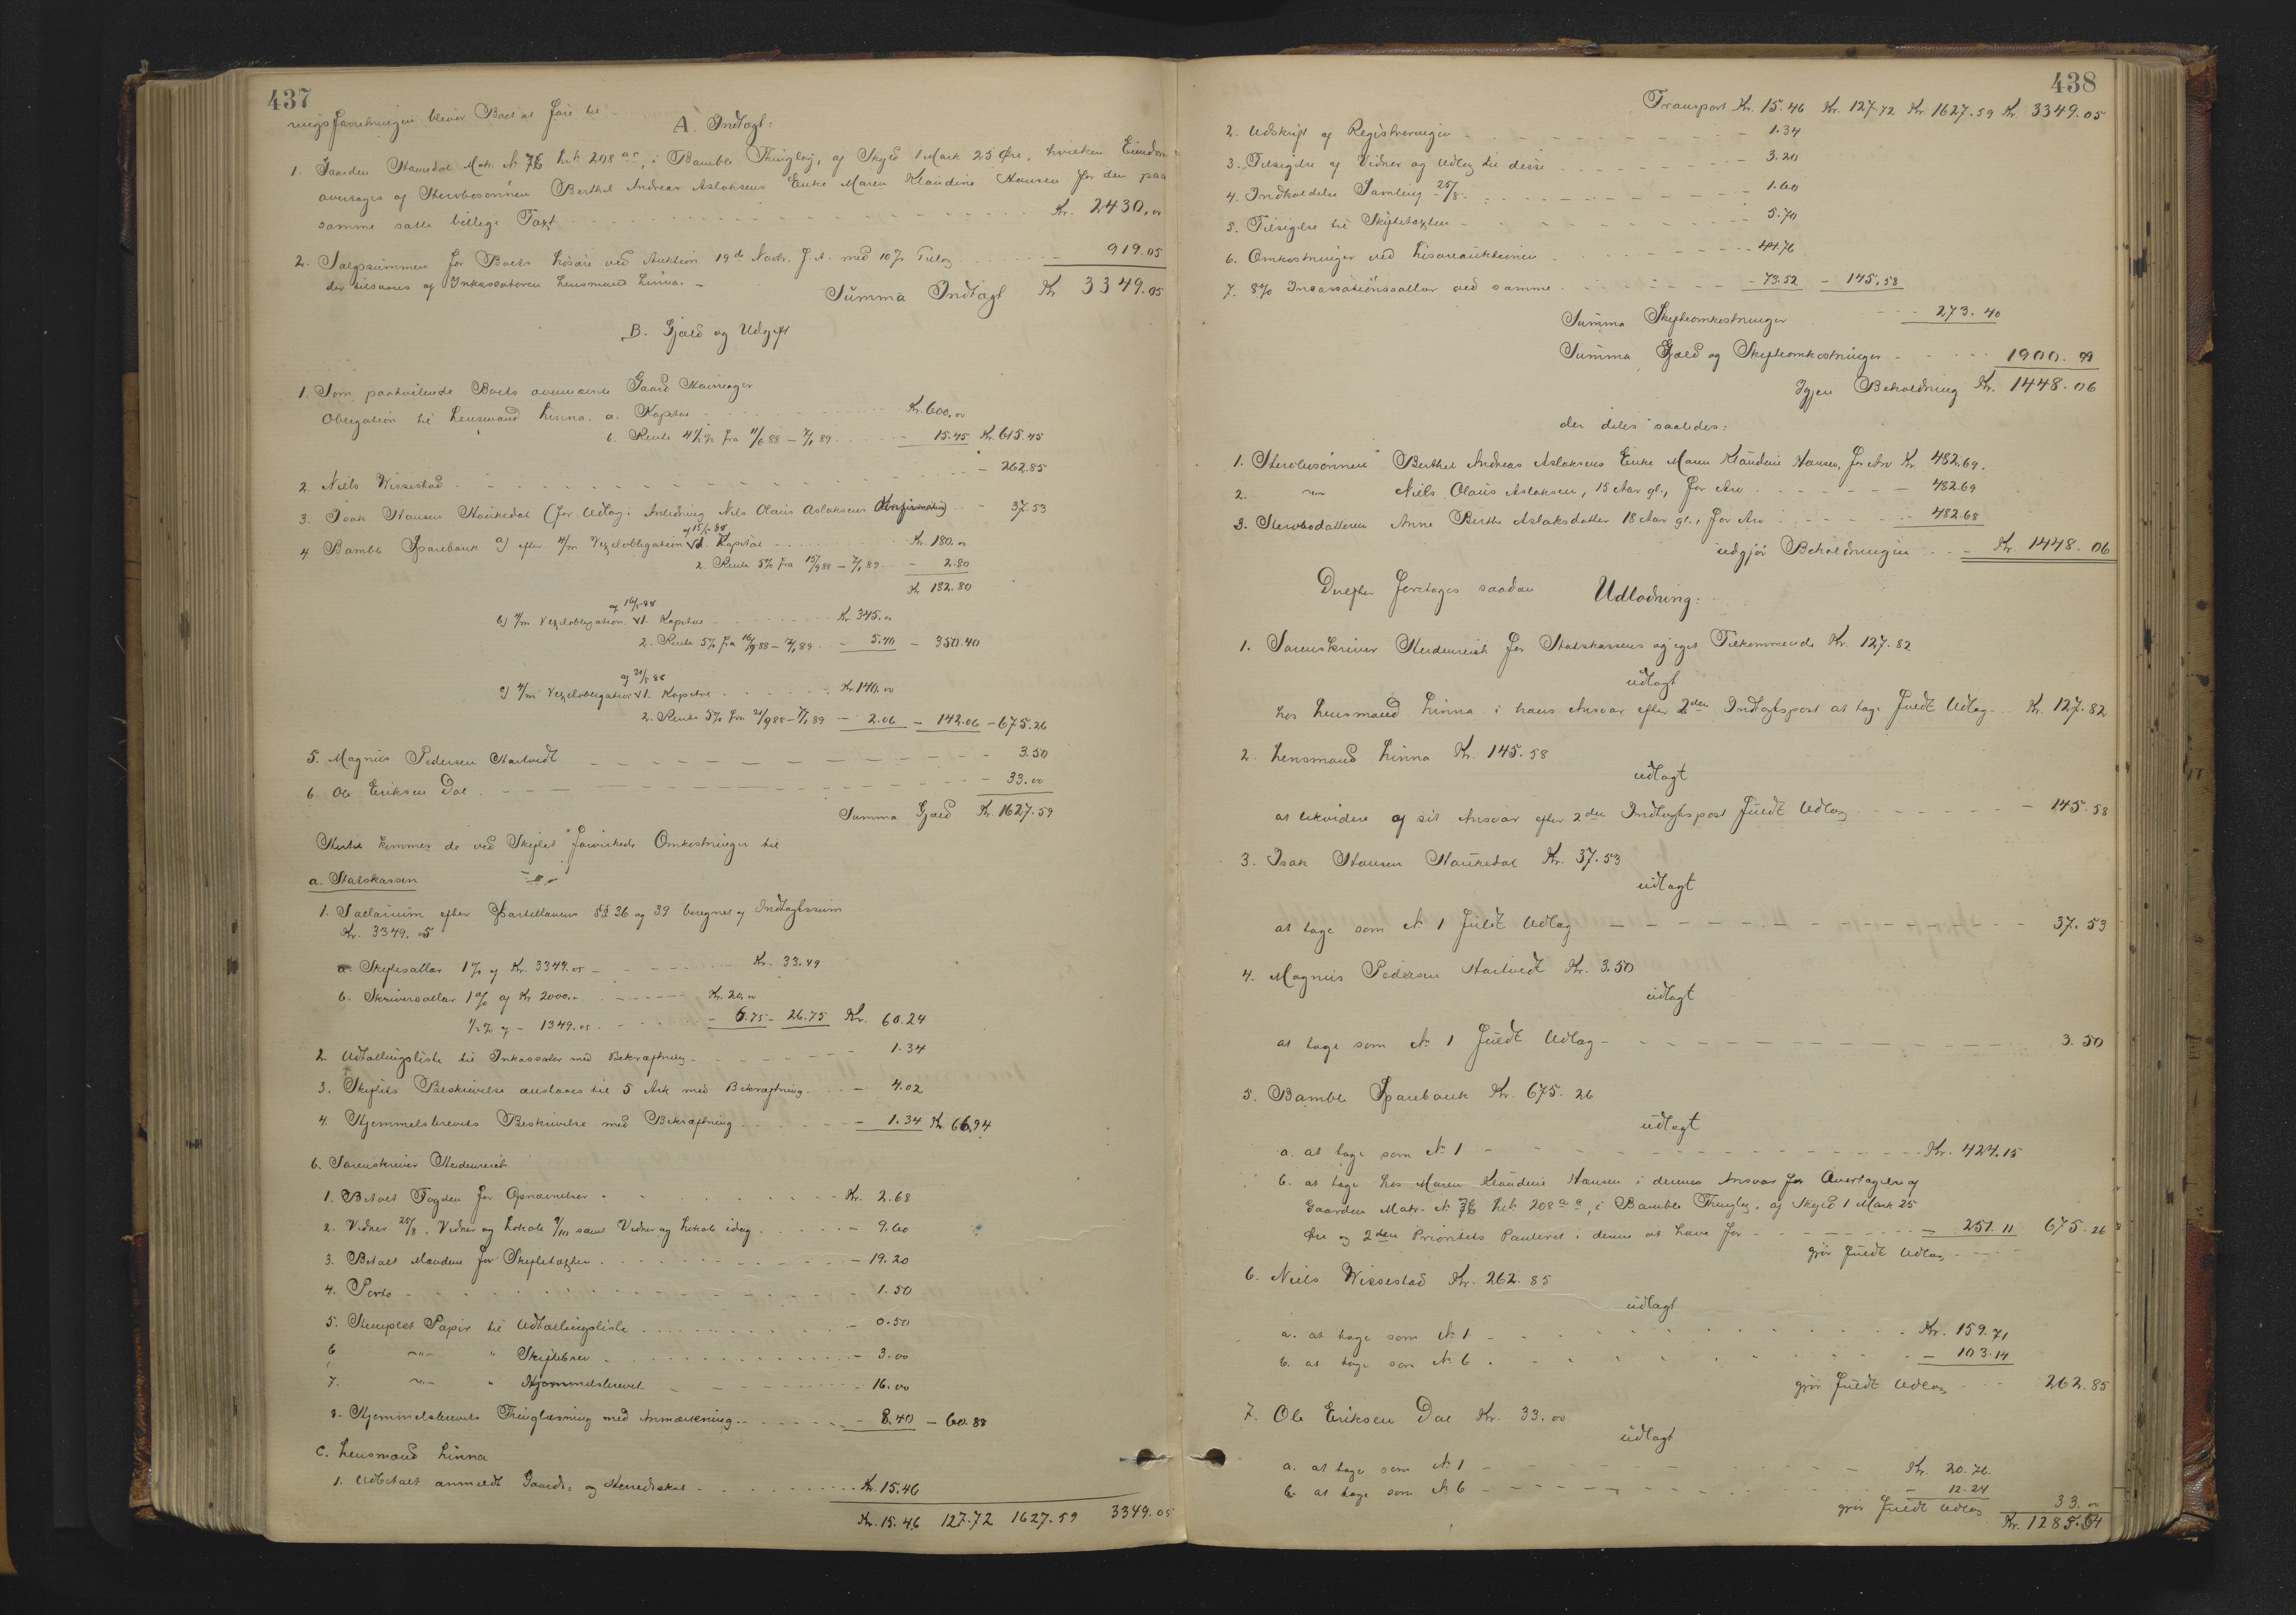 437
ringsforretningen bliver Boet at føre til
A. Indtægt:
1. Gaarden Haukedal Matr. № 76 Lrb. 208 ac, i Bamble Thinglag, af Skyld 1 Mark 25 Øre, hvilken Eiendom
overtages af Stervbosønnen Berthel Andreas Aslaksens Enke Maren Klaudine Hansen for den paa
samme satte billige Taxt Kr. 2430,00
2. Salgssummen for Boets Løsøre ved Auktion 19de Novbr. f. A. med 10% Tillæg - 919.05
der tilsvares af Inkassatoren Lensmand Linna. -
Summa Indtægt Kr 3349.05
B. Gjæld og Udgift
1. Som paahvilende Boets Gaard
Obligation til Lensmand Linna. a. Kapital Kr. 600,00
b. Rente 4½% fra 11/6 88 – 7/1 89 - 15.45 Kr. 615.45
2. Niels Wissestad - 262.85
3. Isak Hansen Haukedal (for Udlæg i Anledning Nils Olaus Aslaksens Konfirmation) - 37.53
4 Bamble Sparebank a) efter 4/m Vexelobligation af 15/5-88 1. Kapital Kr. 180.00
2. Rente 5% fra 15/9 88 – 7/1 89 - 2.80
Kr. 182.80
b) 4/m Vexelobligation af 16/5-88 1. Kapital Kr. 345.00
2. Rente 5% fra 16/9 88 – 7/1 89 - 5.40 - 350.40
c) 4/m Vexelobligation af 21/5 88 1. Kapital Kr. 140.00
2. Rente 5% fra 21/9 88 – 7/1 89 - 2.06 - 142.06 - 675.26
5. Magnus Pedersen Hartvedt - 3.50
6. Ole Eriksen Dal - 33.00
Summa Gjæld Kr. 1627.59
Hertil kommer de ved Skiftet foranledigede Omkostninger til
a. Statskassen
1. Sallarium efter Sportellovens §§ 26 og 39 beregnet af Indtægtssum
Kr. 3349.05
a. Skiftesallar 1% af Kr. 3349.05 - Kr. 33.49
b. Skriversallar 1% af Kr 2000.- Kr. 20.00
½% af - 1349.05 - 6.75 - 26.75 Kr. 60.24
2. Udtællingsliste til Inkassator med Bekræftning - 1.34
3. Skiftets Beskrivelse anslaaes til 5 Ark med Bekræftning - 4.02
4. Hjemmelsbrevets Beskrivelse med Bekræftning - 1.34 Kr. 66.94
b. Sorenskriver Heidenreich
1. Betalt Fogden for Opnævnelser Kr. 2.68
2. Vidner 25/8. Vidner og Lokale 9/11 samt Vidner og Lokale idag - 9.60
3. Betalt Mændene for Skiftetaxten - 19.20
4. Porto - 1.50
5. Stemplet Papir til Udtællingsliste - 0.50
6 -"- " Skiftebrev - 3.00
7. -"- " Hjemmelsbrevet - 16.00
8. Hjemmelsbrevets Thinglæsning med Anmærkning - 8.40 - 60.88
c. Lensmand Linna
1. Udbetalt anmeldt Gaards- og Herredsskat Kr. 15.46
Kr. 15.46 127.72 1627.59 3349.05
438
Transport Kr. 15.46 Kr. 127.72 Kr. 1627.59 Kr. 3349.05
2. Udskrift af Registreringen - 1.34
3. Tilsigelse af Vidner og Udlæg til disse - 3.20
4. Indkaldelse Samling 25/8 - 1.60
5. Tilsigelse til Skiftetaxten - 5.70
6. Omkostninger ved Løsøreauktionen - 44.76
7. 8% Incassationssallar ved samme - 73.52 - 145.58
Summa Skifteomkostninger - 273.40
Summa Gjæld og Skifteomkostninger - 1900.99
Igjen Beholdning Kr. 1448.06
der deles saaledes:
1. Stervbosønnen Berthel Andreas Aslaksens Enke Maren Klaudine Hansen, for Arv Kr. 482.69.
2. -"- Niels Olaus Aslaksen, 15 Aar gl., for Arv - 482.69
3. Stervbodatteren Anne Berthe Aslaksdatter 18 Aar gl., for Arv - 482.68
udgjør Beholdningen - Kr. 1448.06
Derefter foretages saadan Udlodning:
1. Sorenskriver Heidenreich for Statskassens og eget Tilkommende Kr. 127.82
udlagt
hos Lensmand Linna i hans Ansvar efter 2den Indtægtspost at tage fuldt Udlæg Kr. 127.82
2. Lensmand Linna Kr. 145.58
udlagt
at likvidere af sit Ansvar efter 2den Indtægtspost fuldt Udlæg - 145.58
3. Isak Hansen Haukedal Kr. 37.53
udlagt
at tage som № 1 fuldt Udlæg - 37.53
4. Magnus Pedersen Hartvedt Kr. 3.50
udlagt
at tage som № 1 fuldt Udlæg - 3.50
5. Bamble Sparebank Kr. 675.26
udlagt
a. at tage som № 1 - Kr. 424.15
b. at tage hos Maren Klaudine Hansen i dennes Ansvar for Overtagelse af
Gaarden Matr. № 76 Lrb. 208 a c, i Bamble Thinglag, af Skyld 1 Mark 25
Øre og 2den Prioritets Panteret i denne at have for - 251.11 675.26
gjør fuldt Udlæg
6. Niels Wissestad Kr. 262.85
udlagt
a. at tage som № 1 - Kr. 159.71
b. at tage som № 6 - 103.14
gjør fuldt Udlæg 262.85
7. Ole Eriksen Dal Kr. 33.00
udlagt
a. at tage som № 1 - Kr. 20.76
b. at tage som № 6 - 12.24
gjør fuldt Udlæg 33.00
Kr. 1285.54